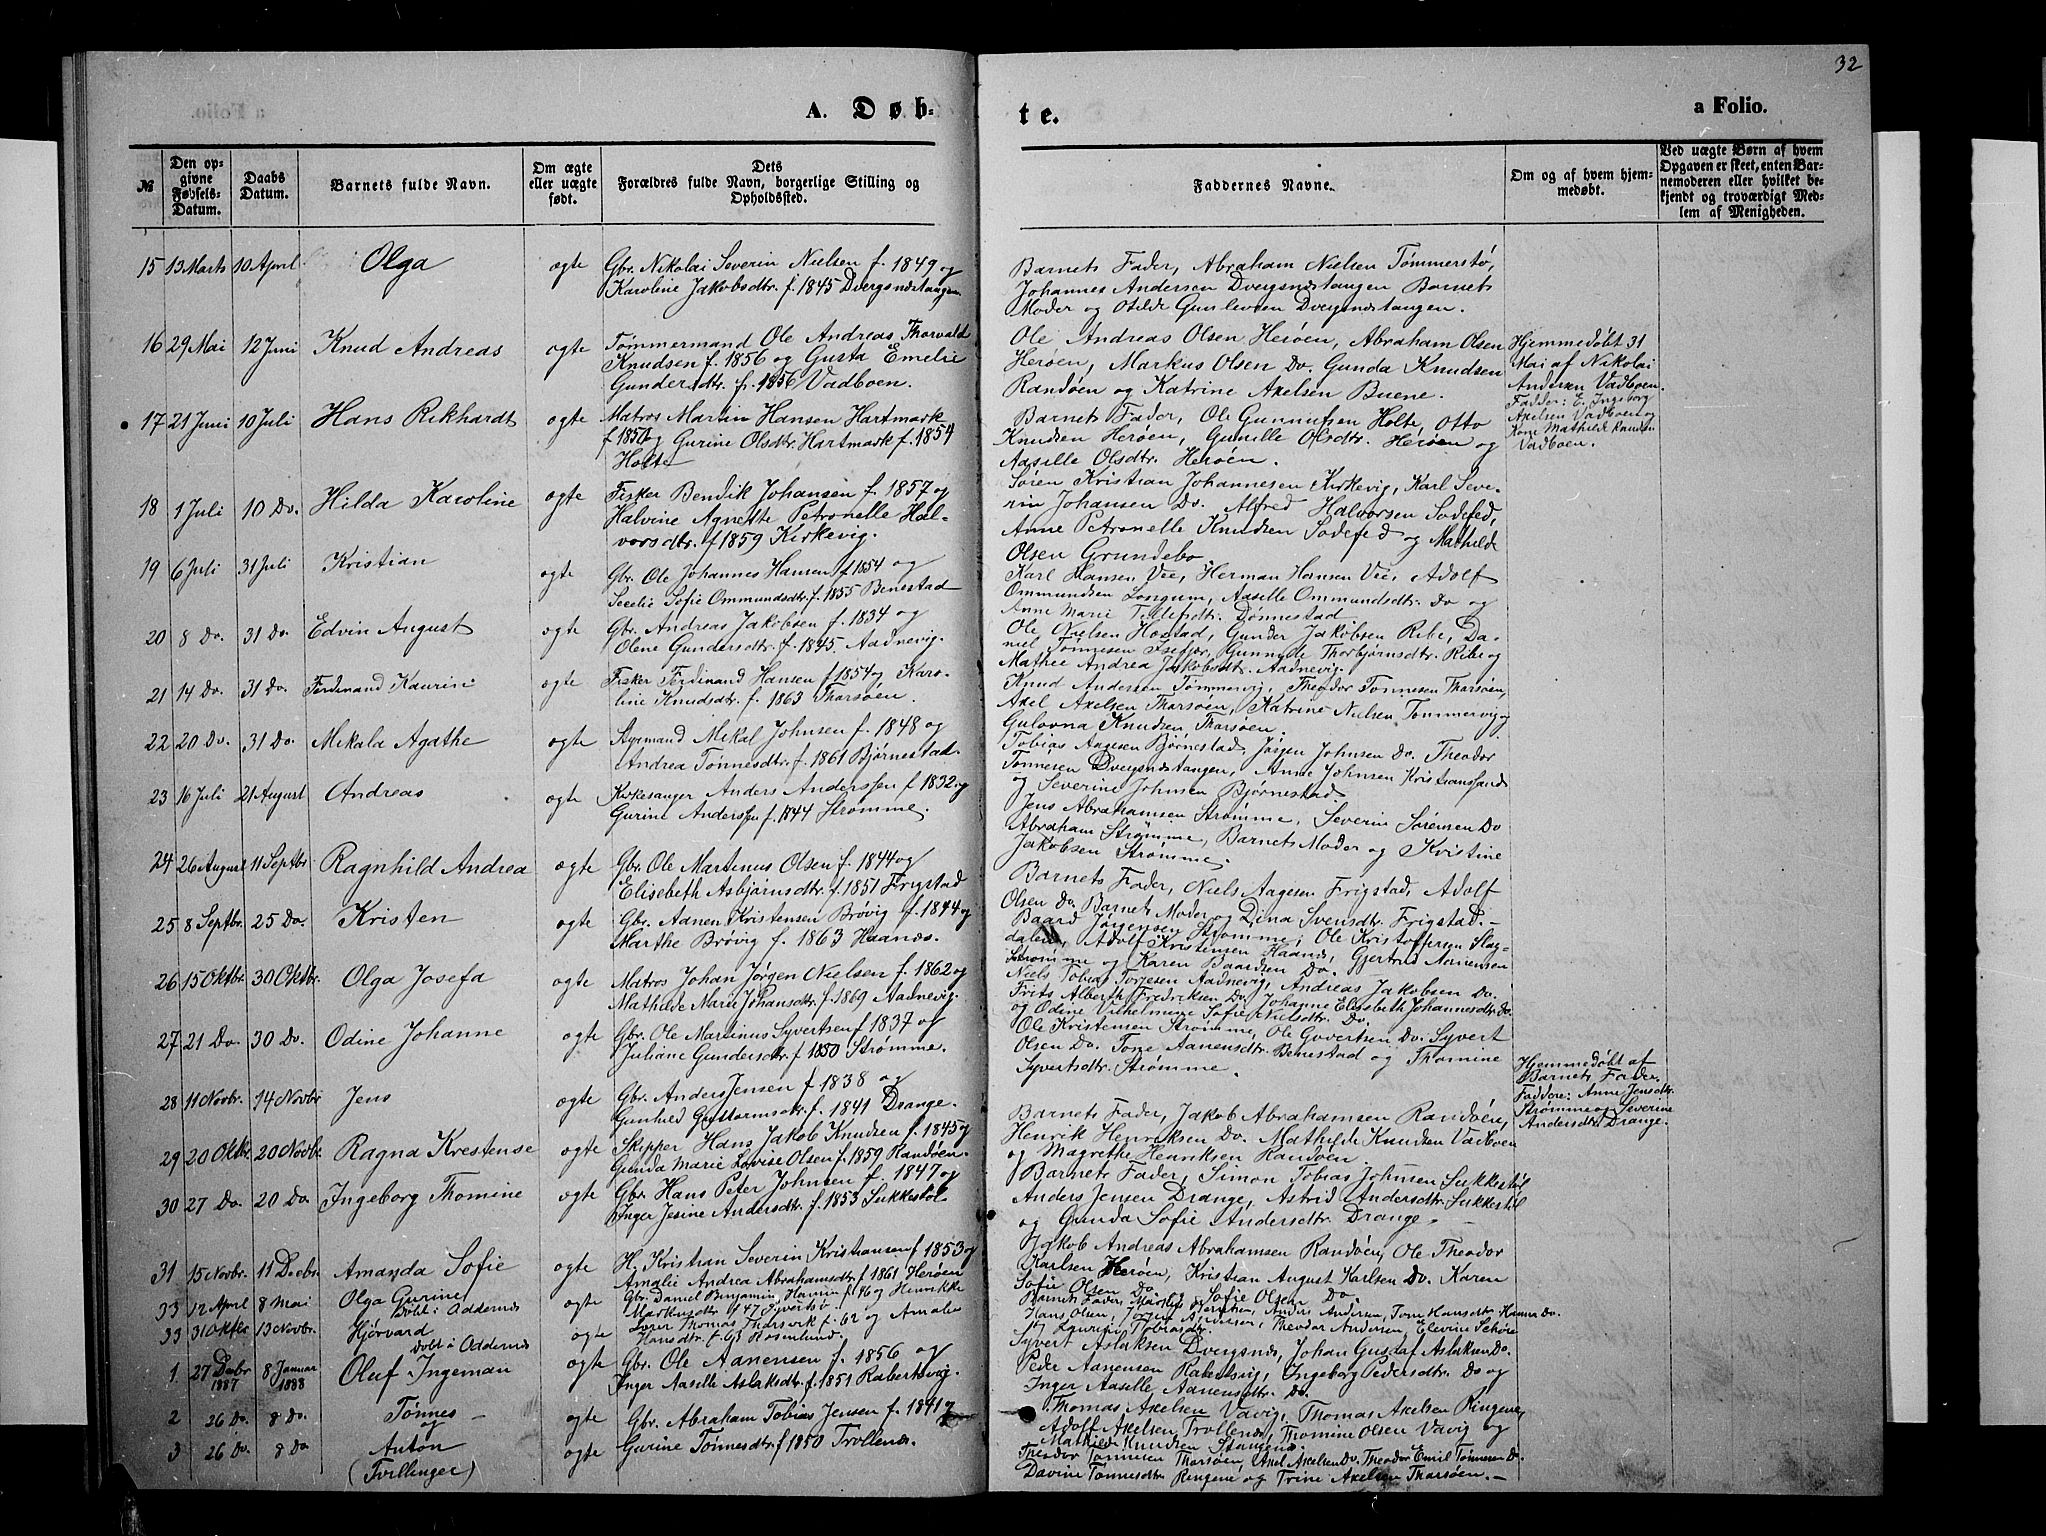 32
A. Døb-
te.
a Folio.
№
Den op-
givne
Fødsels-
Datum.
Daabs
Datum.
Barnets fulde Navn.
Om ægte
eller uægte
født.
Dets
Forældres fulde Navn, borgerlige Stilling og
Opholdssted.
Faddernes Navne.
Om og af hvem hjem-
medøbt.
Ved uægte Børn af hvem
Opgaven er skeet, enten Bar-
nemoderen eller hvilket be-
kjendt og troværdigt Med-
lem af Menigheden.
15 13 Marts 10 April Olga ægte Gbr. Nikolai Severin Nielsen f. 1849 og
Karoline Jakobsdtr. f. 1845 Dvergsnestangen
Barnets Fader, Abraham Nielsen Tømmerstø,
Johannes Andersen Dvergsnestangen Barnets
Moder og Otilde Gunlevsen Dvergsnestangen.
16 29 Mai 12 Juni Knud Andreas ægte Tømmermand Ole Andreas Thorvald
Knudsen f. 1856 og Gusta Emelie
Gundersdtr. f. 1856 Vadboen.
Ole Andreas Olsen Herøen, Abraham Olsen
Herøen, Markus Olsen Do. Gunda Knudsen
Randøen og Katrine Axelsen Buene.
Hjemmedøbt 31
Mai af Nikolai
Andersen Vadboen.
Fadder: E. Ingeborg
Axelsen Vadboen og
Kone Mathilde Knudsen
Vadboen.
17 21 Juni 10 Juli Hans Rikhardt ægte Matros Martin Hansen Hartmark
f. 1850 og Gurine Olsdtr. Hartmark f. 1854
Holte
Barnets Fader, Ole Gunnufsen Holte, Otto
Knudsen Herøen, Gunille Olsdtr. Herøen og
Aasille Olsdtr. Herøen.
18 1 Juli 10 Do. Hilda Karoline ægte Fisker Bendik Johansen f. 1857 og
Halvine Agnette Petronelle Hal-
vorsdtr. f. 1859 Kirkevig.
Søren Kristian Johannesen Kirkevig, Karl Seve-
rin Johansen Do. Alfred Halvorsen Sodefed,
Anne Petronelle Knudsen Sodefed og Mathilde
Olsen Grundebo
19 6 Juli 31 Juli Kristian ægte Gbr. Ole Johannes Hansen f. 1854 og
Secelie Sofie Ommundsdtr. f. 1855 Benestad
Karl Hansen Vee, Herman Hansen Vee, Adolf
Ommundsen Longum, Aaselle Ommundsdtr. Do og
Anne Marie Tellefsdtr. Dønnestad
20 8 Do. 31 Do. Edvin August ægte Gbr. Andreas Jakobsen f. 1834 og
Olene Gundersdtr. f. 1845. Aadnevig.
Ole Nielsen Hostad, Gunder Jakobsen Ribe, Da-
niel Tønnesen Isefjær, Gunnule Thorbjørnsdtr. Ribe og
Mathee Andrea Jakobsdtr. Aadnevig.
21 14 Do. 31 Do. Ferdinand Kaurin ægte Fisker Ferdinand Hansen f. 1854 og Karo-
line Knudsdtr. f. 1863 Tharsøen.
Knud Andersen Tømmervig, Theodor Tønnesen Tharsøen,
Axel Axelsen Tharsøen, Katrine Nielsen Tømmervig og
Gulovna Knudsen Tharsøen.
22 20 Do. 31 Do. Mikala Agathe ægte Styrmand Mikal Johnsen f. 1848 og
Andrea Tønnesdtr. f. 1861 Bjørnestad.
Tobias Aagesen Bjørnestad, Jørgen Johnsen Do. Theodor
Tønnesen Dvergsnestangen, Anne Johnsen Kristianssand
og Severine Johnsen Bjørnestad.
23 16 Juli 21 August Andreas ægte Kirkesanger Anders Anderssen f. 1832 og
Gurine Anderssen f. 1844 Strømme.
Jens Abrahamsen Strømme, Severin Sørensen Do
Abraham Strømme, Barnets Moder og Kristine
Jakobsen Strømme.
24 26 August 11 Septbr Ragnhild Andrea ægte Gbr. Ole Martinus Olsen f. 1844 og
Elisebeth Asbjørnsdtr. f. 1851 Frigstad
Barnets Fader, Niels Aagesen Frigstad, Adolf
Olsen Do. Barnets Moder og Dina Svensdtr. Frigstad.
25 8 Septbr. 25 Do. Kristen ægte Gbr. Aanen Kristensen Brøvig f. 1844 og
Marthe Brøvig f. 1863 Haanes.
Baard Jørgensen Strømme, Ole Kristoffersen Slag-
dalen, Adolf Kristensen Haanes, Gjertrud Aanensen
Strømme og Karen Baardsen Do.
26 15 Oktbr. 30 Oktbr. Olga Josefa ægte Matros Johan Jørgen Nielsen f. 1862 og
Mathilde Marie Johansdtr. f. 1869 Aadnevig.
Niels Tobias Torjesen Aadnevig, Andreas Jakobsen Do.
Frits Alberth Fredriksen Do. Johanne Elisebeth Johannesdtr. Do.
og Odine Vilhelmine Sofie Nielsdtr. Do.
27 21 Do. 30 Do. Odine Johanne ægte Gbr. Ole Martinus Syvertsen f. 1837 og
Juliane Gundersdtr. f. 1850 Strømme.
Ole Kristensen Strømme, Ole Govertsen Do. Syvert
Olsen Do. Tone Aanensdtr. Benestad og Thomine
Syvertsdtr. Strømme.
28 11 Novbr. 14 Novbr Jens ægte Gbr. Anders Jensen f. 1838 og
Gunhild Guttormsdtr. f. 1841 Drange.
Hjemmedøbt af
Barnets Fader.
Faddere: Anne Jensdtr.
Strømme og Severine
Andersdtr. Drange.
29 20 Oktbr. 20 Novbr. Ragna Krestense ægte Skipper Hans Jakob Knudsen f. 1845 og
Gunda Marie Lovise Olsen f. 1859 Randøen.
Barnets Fader, Jakob Abrahamsen Randøen,
Henrik Henriksen Do. Mathilde Knudsen Vadboen
og Magrethe Henriksen Randøen
30 27 Do. 20 Do Ingeborg Thomine ægte Gbr. Hans Peter Johnsen f. 1847 og
Inger Jesine Andersdtr. f. 1853 Sukkestøl
Barnets Fader, Simon Tobias Johnsen Sukkestøl
Anders Jensen Drange, Astrid Andersdtr. Sukkestøl
og Gunda Sofie Andersdtr. Drange.
31 15 Novbr. 11 Decbr. Amanda Sofie ægte H. Kristian Severin Kristiansen f. 1853 og
Amalie Andrea Abrahamsdtr. f. 1861 Herøen
Jakob Andreas Abrahamsen Randøen, Ole Theodor
Karlsen Herøen, Kristian August Karlsen Do. Karen
Sofie Olsen Do. Sofie Olsen Do
33 12 April 8 Mai Olga Gurine
Døbt i Oddernes ægte Gbr. Daniel Benjamin Hannin f. 46 og Henrikke
Markusdtr. f. 47
Hans Olsen,
33 31 Oktbr 13 Novbr. Hjørvard
Døbt i Oddernes ægte Thomas Tharsvik f. 62 og Amalie
Hansdtr. f. 63 Rosenlund.
1 27 Decbr 1887 8 Januar 1888 Oluf Ingeman ægte Gbr. Ole Aanensen f. 1856 og
Inger Aasille Aslaksdtr. f. 1851 Rabertsvig.
Syvert Aslaksen Dvergsnes, Johan Gustaf Aslaksen Do.
Peder Aanensen Rabertsvig, Ingeborg Pedersdtr. Do og
Inger Aaselle Aanensdtr. Do.
2 26 Do. 8 Do. Tønnes
og
ægte Gbr. Abraham Tobias Jensen f. 1841 og
Thomas Axelsen Vavig, Thomas Axelsen Ringene,
Adolf Axelsen Trollenes, Thomine Olsen Vavig og
Mathilde Knudsen Stangenes.
3 26 Do 8 Do Anton
(Tvillinger)
ægte Gurine Tønnesdtr. f. 1850 Trollenes.
Theodor Tønnesen Tharsøen, Axel Axelsen Do. Theodor Emil Tønnesen Do.
Davine Tønnesdtr. Ringene og Trine Axelsen Tharsøen.